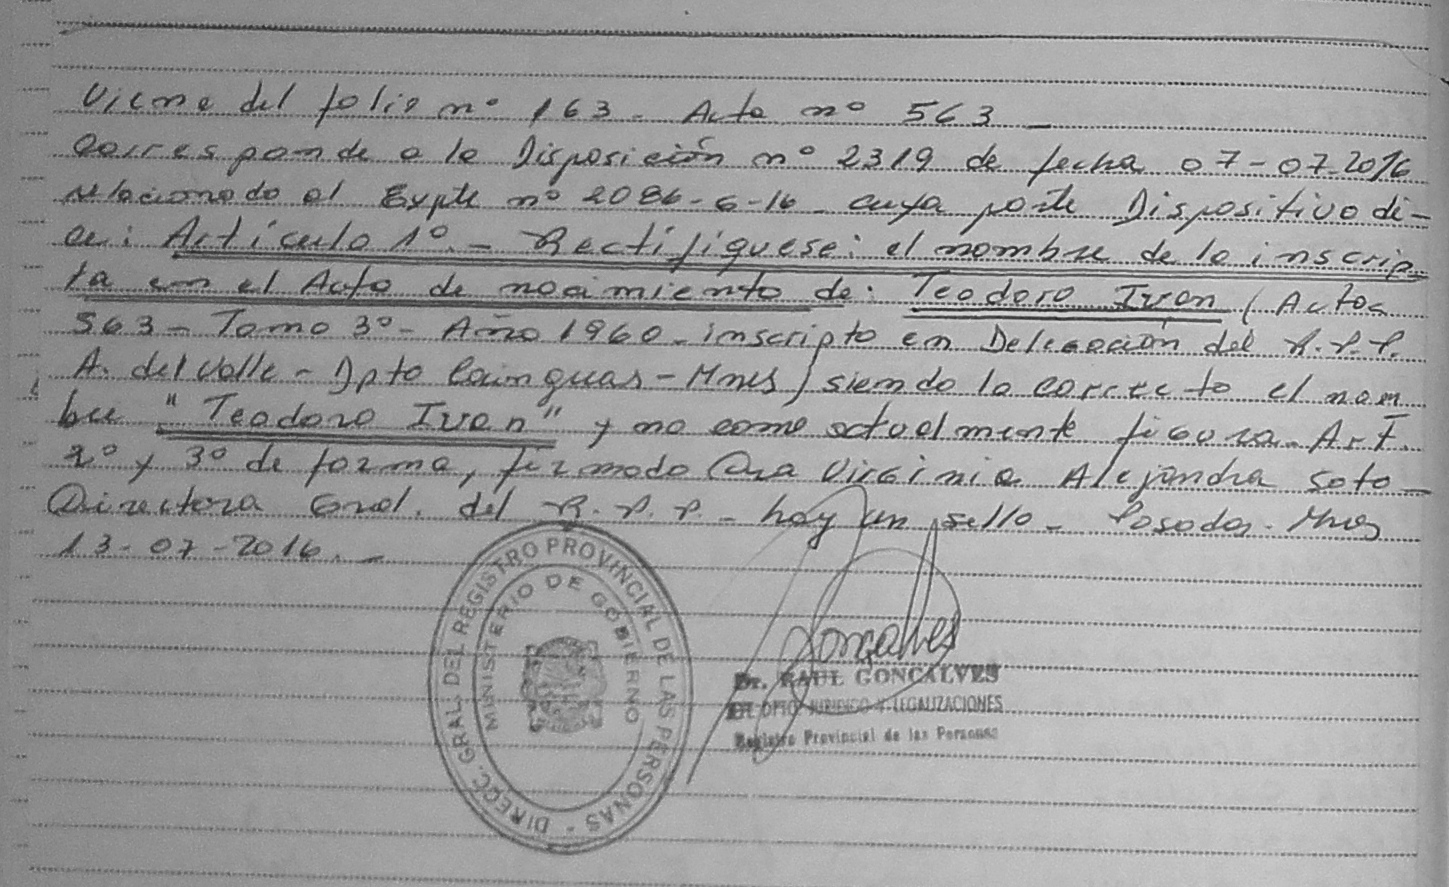 Viene del folio nº 163 - Acta nº 563 -
Corresponde a la Disposición nº 2319 de fecha 07-07-2016
relacionado al Expte nº 2086-G-16 - cuya parte Dispositivo di-
ce: Artículo 1º - Rectifiquese: el nombre de la inscrip-
ta en el Acta de nacimiento de: Teodoro Ivan (Actas
563 - Tomo 3º - Año 1960 - inscripto en Delegación del R.P.P.
A. del Valle - Dpto Cainguas - Mnes) siendo lo correcto el nom
bre "Teodoro Ivan" y no como actualmente figura - Art.
2º y 3º de forma, firmado Dra Virginia Alejandra Soto -
Directora Gral. del R.P.P. - hay un sello - Posadas - Mnes
13-07-2016. -
DIRECC. GRAL. DEL REGISTRO PROVINCIAL DE LAS PERSONAS -
MINISTERIO DE GOBIERNO
Gonçalves
Dr. RAUL GONCALVES
DPTO JURIDICO Y LEGALIZACIONES
Registro Provincial de las Personas